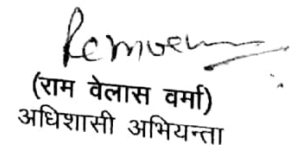 (राम वेलास वर्मा)
अधिशासी अभियन्ता